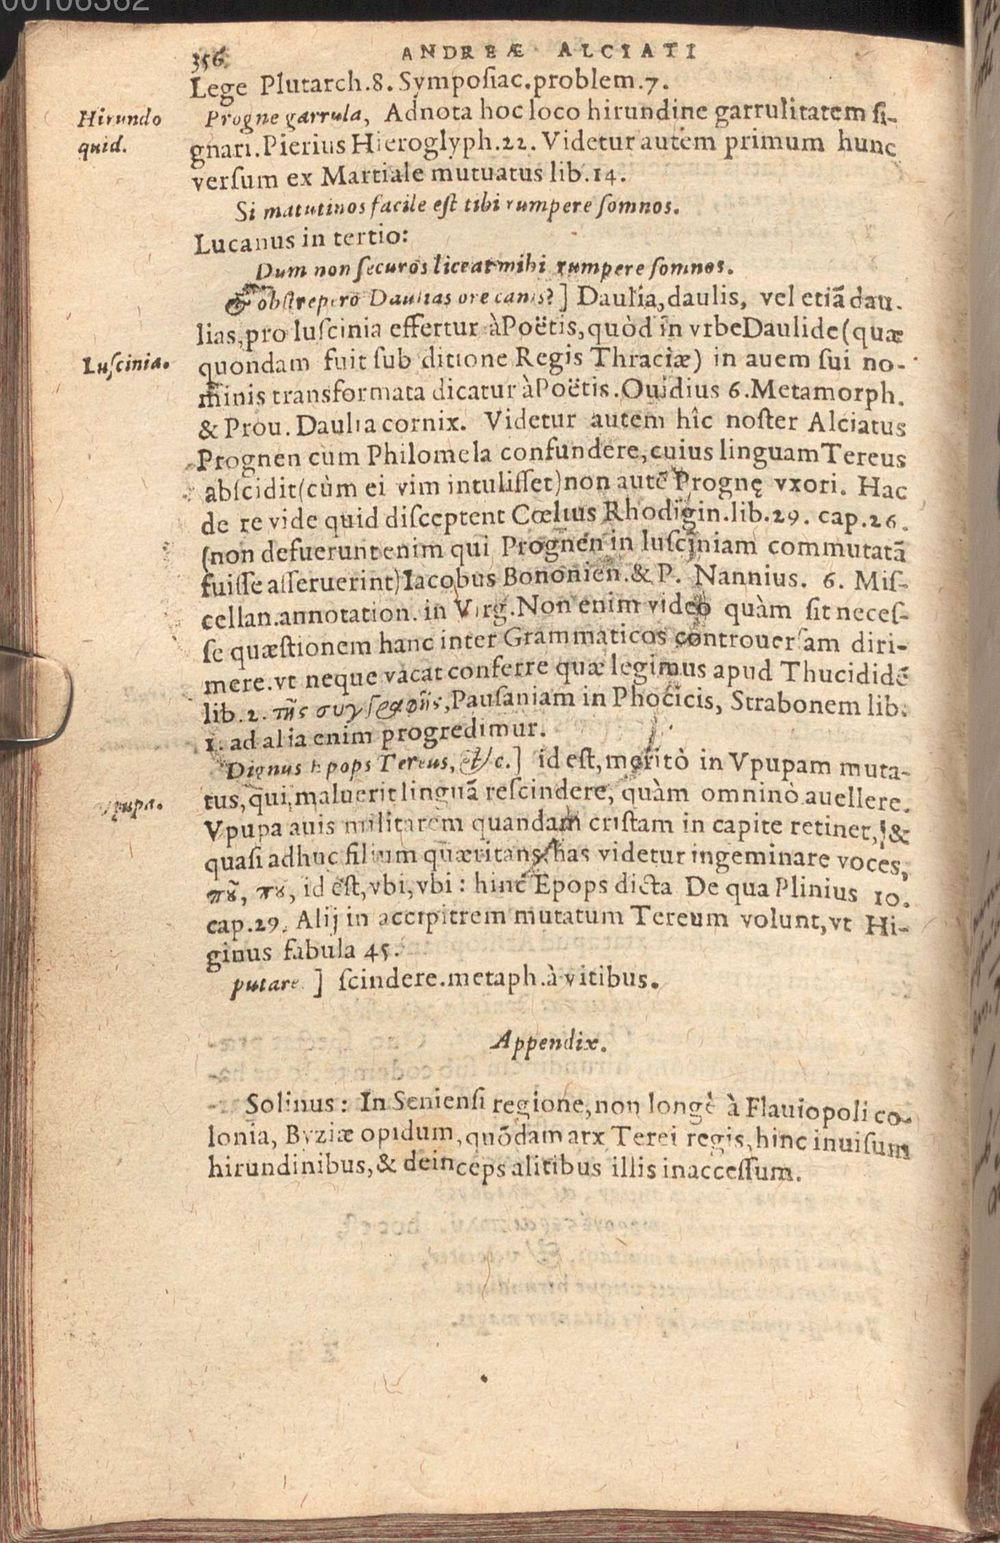 00106362
356 ANDREÆ ALCIATI
Lege Plutarch.8. Symposiac.problem.7.
Hirundo quid.
Progne garrula, Adnota hoc loco hirundine garrulitatem si-
gnari.Pierius Hieroglyph.22. Videtur autem primum hunc
versum ex Martiale mutuatus lib.14.
Si matutinos facile est tibi rumpere somnos.
Lucanus in tertio:
Dum non securos liceat mihi rumpere somnos.
& obstrepero Daulias ore canis?] Daulia, daulis, vel etiã dau-
lias, pro luscinia effertur à Poëtis, quòd in vrbe Daulide (quæ
Luscinia.
quondam fuit sub ditione Regis Thraciæ) in auem sui no-
minis transformata dicatur à Poëtis. Ouidius 6. Metamorph.
& Prou. Daulia cornix. Videtur autem hîc noster Alciatus
Prognen cum Philomela confundere, cuius linguam Tereus
abscidit (cùm ei vim intulisset) non autẽ Prognę vxori. Hac
de re vide quid disceptent Cœlius Rhodigin.lib.29. cap.26.
(non defuerunt enim qui Prognen in lusciniam commutatã
fuisse asseruerint) Iacobus Bononien. & P. Nannius. 6. Mis-
cellan.annotation. in Virg. Non enim video quàm sit neces-
se quæstionem hanc inter Grammaticos controuersam diri-
mere. vt neque vacat conferre quæ legimus apud Thucididẽ
lib.2. τῆς συγγραφῆς, Pausaniam in Phocicis, Strabonem lib.
1. ad alia enim progredimur.
Dignus Epops Tereus, &c.] id est, meritò in Vpupam muta-
Vpupa.
tus, qui maluerit linguã rescindere, quàm omninò auellere.
Vpupa auis militarem quandam cristam in capite retinet, &
quasi adhuc filium quæritans, has videtur ingeminare voces,
πῦ, πῦ, id est, vbi, vbi : hinc Epops dicta De qua Plinius 10.
cap.29. Alij in accipitrem mutatum Tereum volunt, vt Hi-
ginus fabula 45.
putare ] scindere. metaph. à vitibus.
Appendix.
Solinus : In Seniensi regione, non longè à Flauiopoli co-
lonia, Byziæ opidum, quõdam arx Terei regis, hinc inuisum
hirundinibus, & deinceps alitibus illis inaccessum.